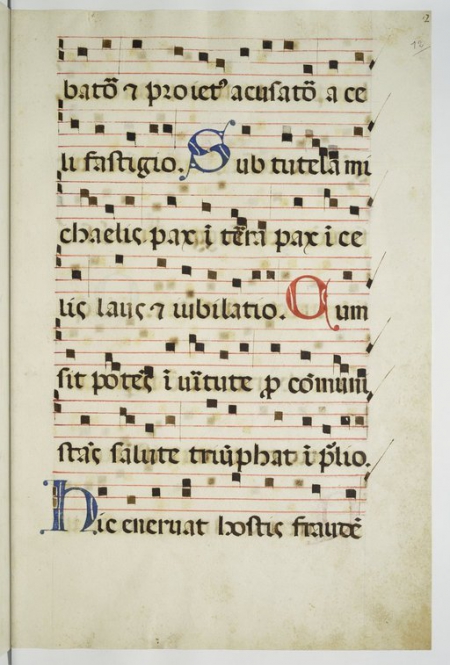 2
12
batō ⁊ proietꝰ acusatō a ce
li fastigio. Sub tutela mi
chaelis pax ī tēra pax ī ce
lis laus ⁊ iubilatio. Cum
sit potēs ī uītute ꝓ cōmuni
stās salute triūphat ī p̄lio.
Hic eneruat hostis fraudē